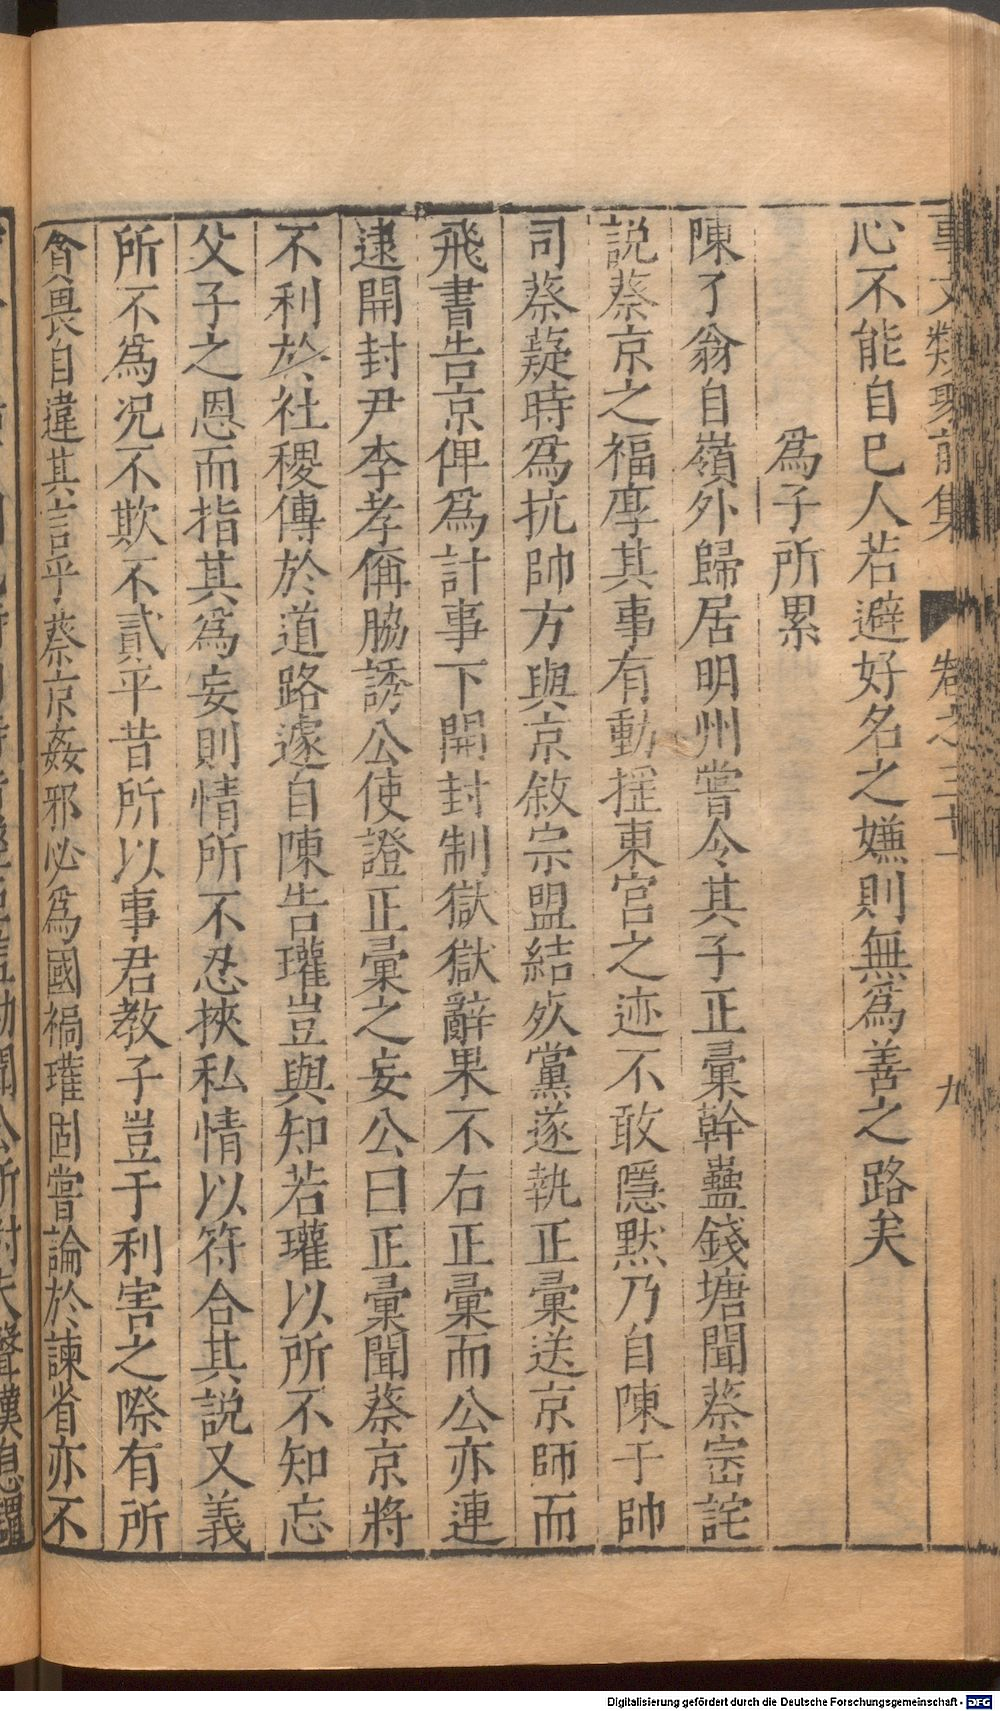 事文類聚前集 卷之三十一 九
心不能自已人若避好名之嫌則無為善之路矣
為子所累
陳了翁自嶺外歸居明州嘗令其子正彙幹蠱錢塘聞蔡崈詫
説蔡京之福厚其事有動搖東宮之迹不敢隱默乃自陳于帥
司蔡薿時為抗帥方與京敘宗盟結死黨遂執正彙送京師而
飛書告京俾為計事下開封制獄獄辭果不右正彙而公亦連
逮開封尹李孝偁脇誘公使證正彙之妄公曰正彙聞蔡京將
不利於社稷傳於道路遽自陳告瓘豈與知若瓘以所不知忘
父子之恩而指其為妄則情所不忍挾私情以符合其説又義
所不為况不欺不貳平昔所以事君教子豈于利害之際有所
貪畏自違其言乎蔡京姦邪必為國禍瓘固嘗論於諫省亦不
Digitalisierung gefördert durch die Deutsche Forschungsgemeinschaft - DFG